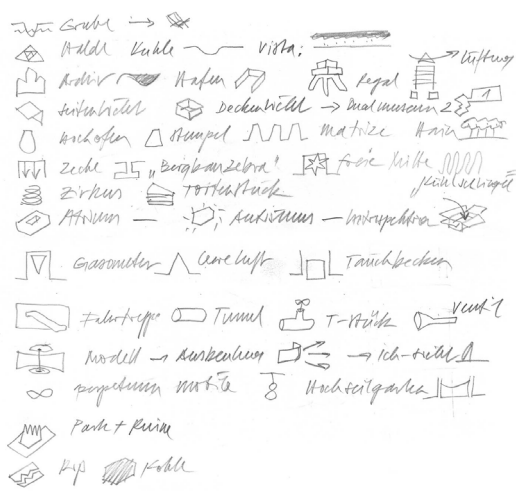 Grube →
Halde Kuhle Vista:
Archiv Hafen Regal Lüftung
Seitenlicht Deckenlicht → Dualmuseum 2 1
Hochofen Stempel Matrize Hain
Zeche "Bergbauzebra" freie Mitte
Zirkus Tortenstück "Kühlschlange"
Atrium — Autismus — Introspektion
Gasometer Leere Luft Tauchbecken
Fahrtreppe Tunnel T-Stück Ventil
Modell → → Ich-
perpetuum mobile Hochseilgarten
Park + Ruine
Kohle